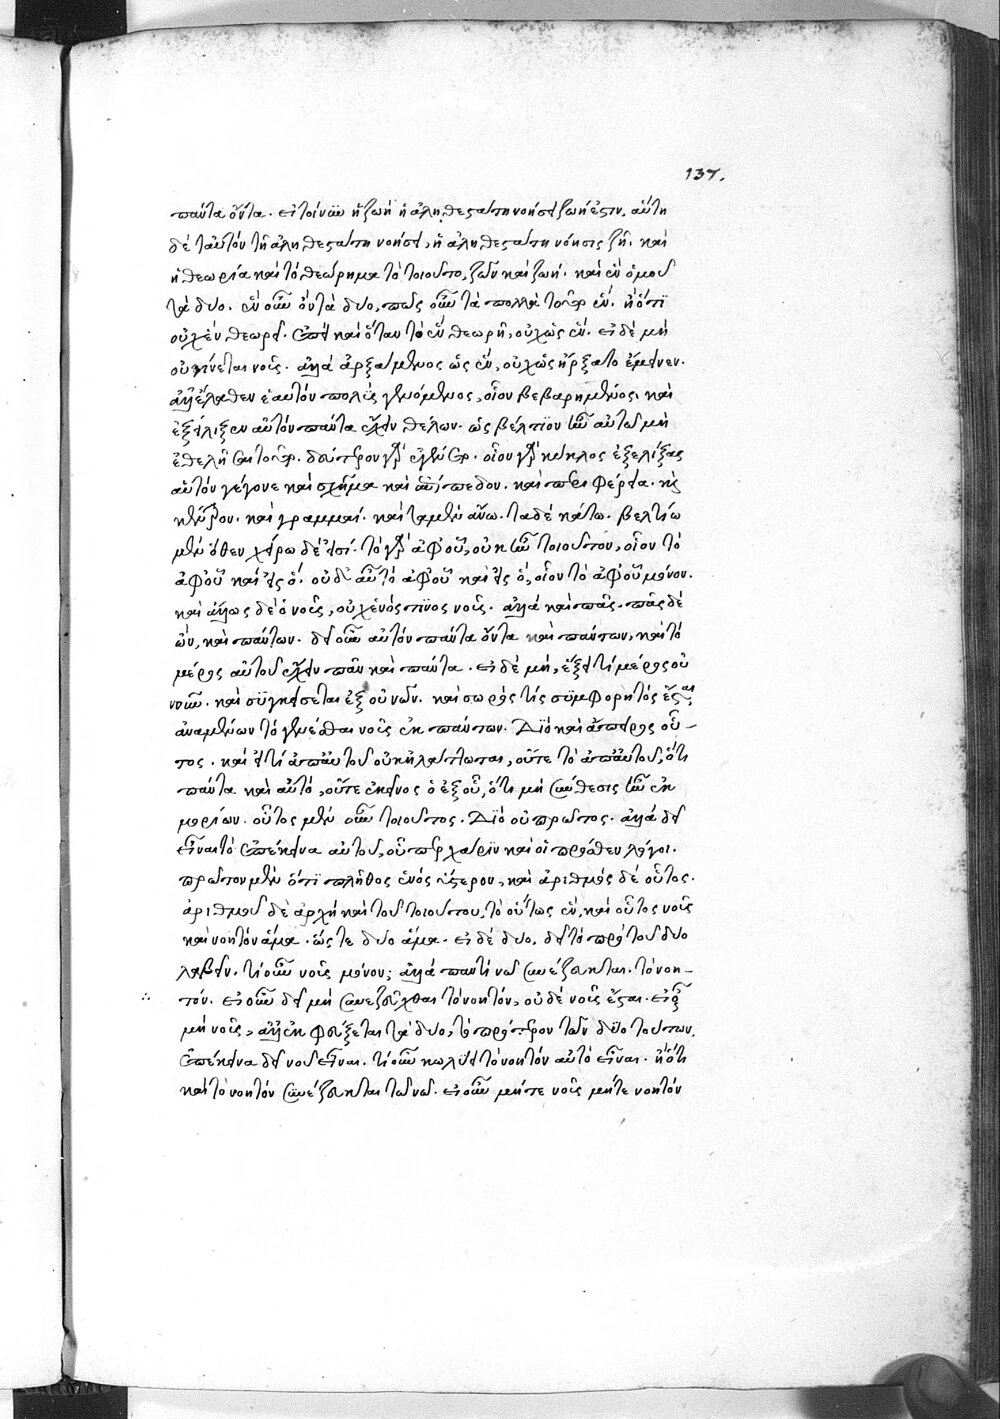 137.
πάντα ὄντα. εἰ τοίνυν ἡ ζωὴ ἡ ἀληθεστάτη νοήσει ζωή ἐστιν, αὕτη
δὲ ταὐτὸν τῇ ἀληθεστάτῃ νοήσει, ἡ ἀληθεστάτη νόησις ζῇ. καὶ
ἡ θεωρία καὶ τὸ θεώρημα τὸ τοιοῦτο, ζῶν καὶ ζωή. καὶ ἓν ὁμοῦ
τὰ δύο. ἓν οὖν ὄντα δύο, πῶς οὖν τὰ πολλὰ τοῦτο ἕν. ἢ ὅτι
οὐχ ἓν θεωρεῖ. ἐπεὶ καὶ ὅταν τὸ ἓν θεωρῇ, οὐχ ὡς ἕν. εἰ δὲ μὴ
οὐ γίνεται νοῦς. ἀλλὰ ἀρξάμενος ὡς ἕν, οὐχ ὡς ἤρξατο ἔμεινεν.
ἀλλ' ἔλαθεν ἑαυτὸν πολὺς γενόμενος, οἷον βεβαρημένος. καὶ
ἐξείλιξεν αὑτὸν πάντα ἔχειν θέλων. ὡς βέλτιον ἦν αὐτῷ μὴ
ἐθελῆσαι τοῦτο. δεύτερον γὰρ ἐγένετο. οἷον γὰρ κύκλος ἐξελίξας
αὑτὸν γέγονε καὶ σχῆμα καὶ ἐπίπεδον. καὶ περιφέρεια. καὶ
κέντρον. καὶ γραμμαί. καὶ τὰ μὲν ἄνω. τὰ δὲ κάτω. βελτίω
μὲν ὅθεν χείρω δὲ εἰς ὅ. τὸ γὰρ ἀφ' οὗ, οὐκ ἦν τοιοῦτον, οἷον τὸ
ἀφ' οὗ καὶ εἰς ὅ. οὐδ' αὖ τὸ ἀφ' οὗ καὶ εἰς ὅ, οἷον τὸ ἀφ' οὗ μόνον.
καὶ ἄλλως δὲ ὁ νοῦς, οὐχ ἑνός τινος νοῦς. ἀλλὰ καὶ πᾶς. πᾶς δὲ
ὢν, καὶ πάντων. δεῖ οὖν αὐτὸν πάντα ὄντα καὶ πάντων, καὶ τὸ
μέρος αὐτοῦ ἔχειν πᾶν καὶ πάντα. εἰ δὲ μή, ἕξει τι μέρος οὐ
νοῦν. καὶ συγκείσεται ἐξ οὐ νῶν. καὶ σωρός τις συμφορητὸς ἔσται
ἀναμένων τὸ γενέσθαι νοῦς ἐκ πάντων. Διὸ καὶ ἄπειρος οὗ-
τος. καὶ εἴ τι ἀπ' αὐτοῦ οὐκ ἠλάττωται, οὔτε τὸ ἀπ' αὐτοῦ, ὅτι
πάντα καὶ αὐτό, οὔτε ἐκεῖνος ὁ ἐξ οὗ, ὅτι μὴ σύνθεσις ἦν ἐκ
μορίων. οὗτος μὲν οὖν τοιοῦτος. Διὸ οὐ πρῶτος. ἀλλὰ δεῖ
εἶναι τὸ ἐπέκεινα αὐτοῦ, οὗπερ χάριν καὶ οἱ πρόσθεν λόγοι.
πρῶτον μὲν ὅτι πλῆθος ἑνὸς ὕστερον, καὶ ἀριθμὸς δὲ οὗτος.
ἀριθμοῦ δὲ ἀρχὴ καὶ τοῦ τοιούτου, τὸ οὕτως ἕν, καὶ οὗτος νοῦς
καὶ νοητὸν ἅμα. ὥστε δύο ἅμα. εἰ δὲ δύο, δεῖ τὸ πρὸ τοῦ δύο
λαβεῖν. τί οὖν νοῦς μόνον; ἀλλὰ παντὶ νῷ συνέζευκται. τὸ νοη-
τόν. εἰ οὖν δεῖ μὴ συνεζεῦχθαι τὸ νοητόν, οὐδὲ νοῦς ἔσται. εἰ οὖν
μὴ νοῦς, ἀλλ' ἐκφεύξεται τὰ δύο, τὸ πρότερον τῶν δύο τούτων,
ἐπέκεινα δεῖ νοῦ εἶναι. τί οὖν κωλύει τὸ νοητὸν αὐτὸ εἶναι. ἢ ὅτι
καὶ τὸ νοητὸν συνέζευκται τῷ νῷ. εἰ οὖν μήτε νοῦς μήτε νοητὸν